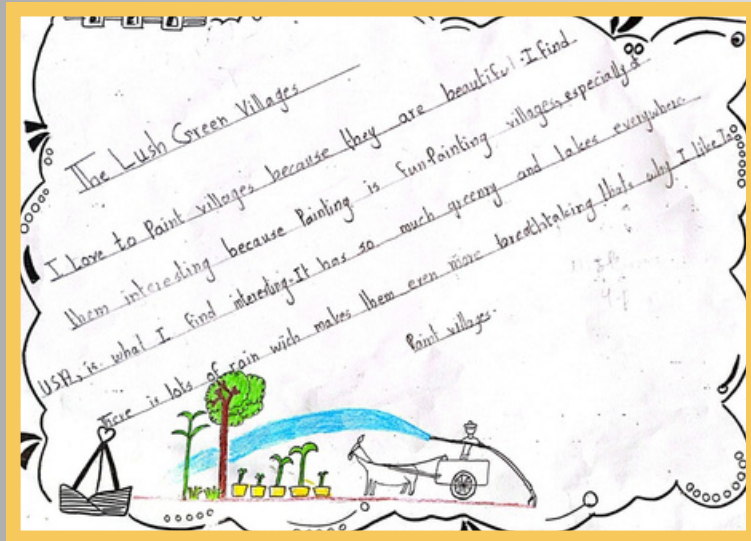 The Lush Green Villages
I Love to Paint villages because they are beautiful. I find
them interesting because Painting is fun. Painting villages, especially of
USA, is what I find interesting. It has so much greenry and lakes everywhere.
There is lots of rain wich makes them even more breathtaking thats why I like to
Paint villages.